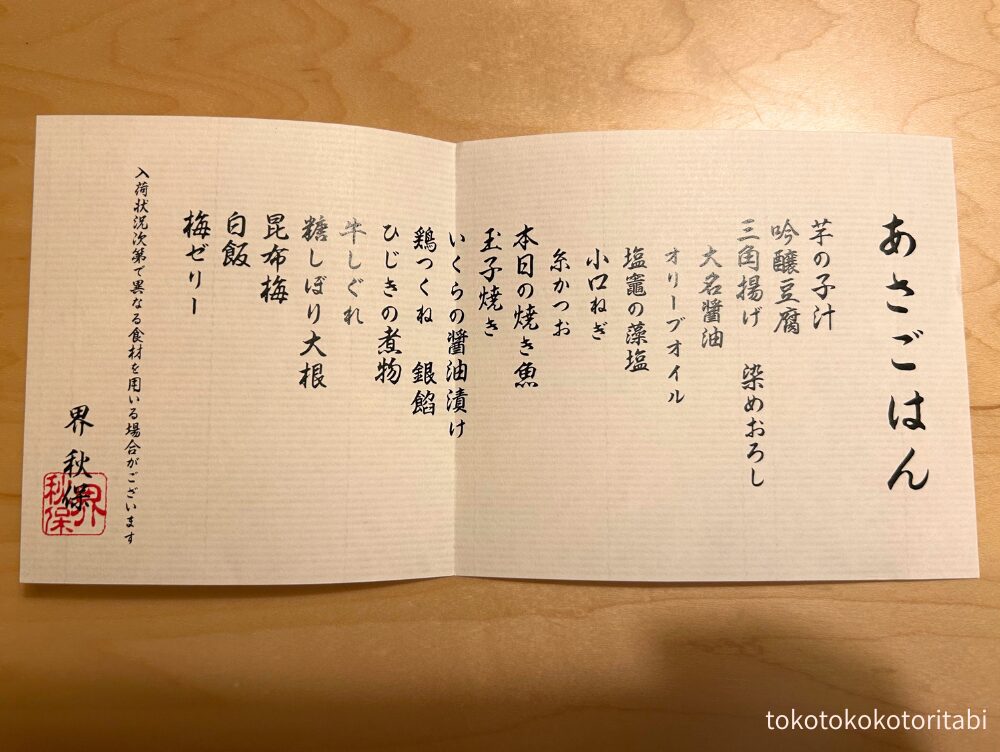 あさごはん
芋の子汁
吟醸豆腐
三角揚げ　染めおろし
大名醤油
オリーブオイル
塩竈の藻塩
小口ねぎ
糸かつお
本日の焼き魚
玉子焼き
いくらの醤油漬け
鶏つくね　銀餡
ひじきの煮物
牛しぐれ
糖しぼり大根
昆布梅
白飯
梅ゼリー
入荷状況次第で異なる食材を用いる場合がございます
界 秋保
界秋保
tokotokokotoritabi